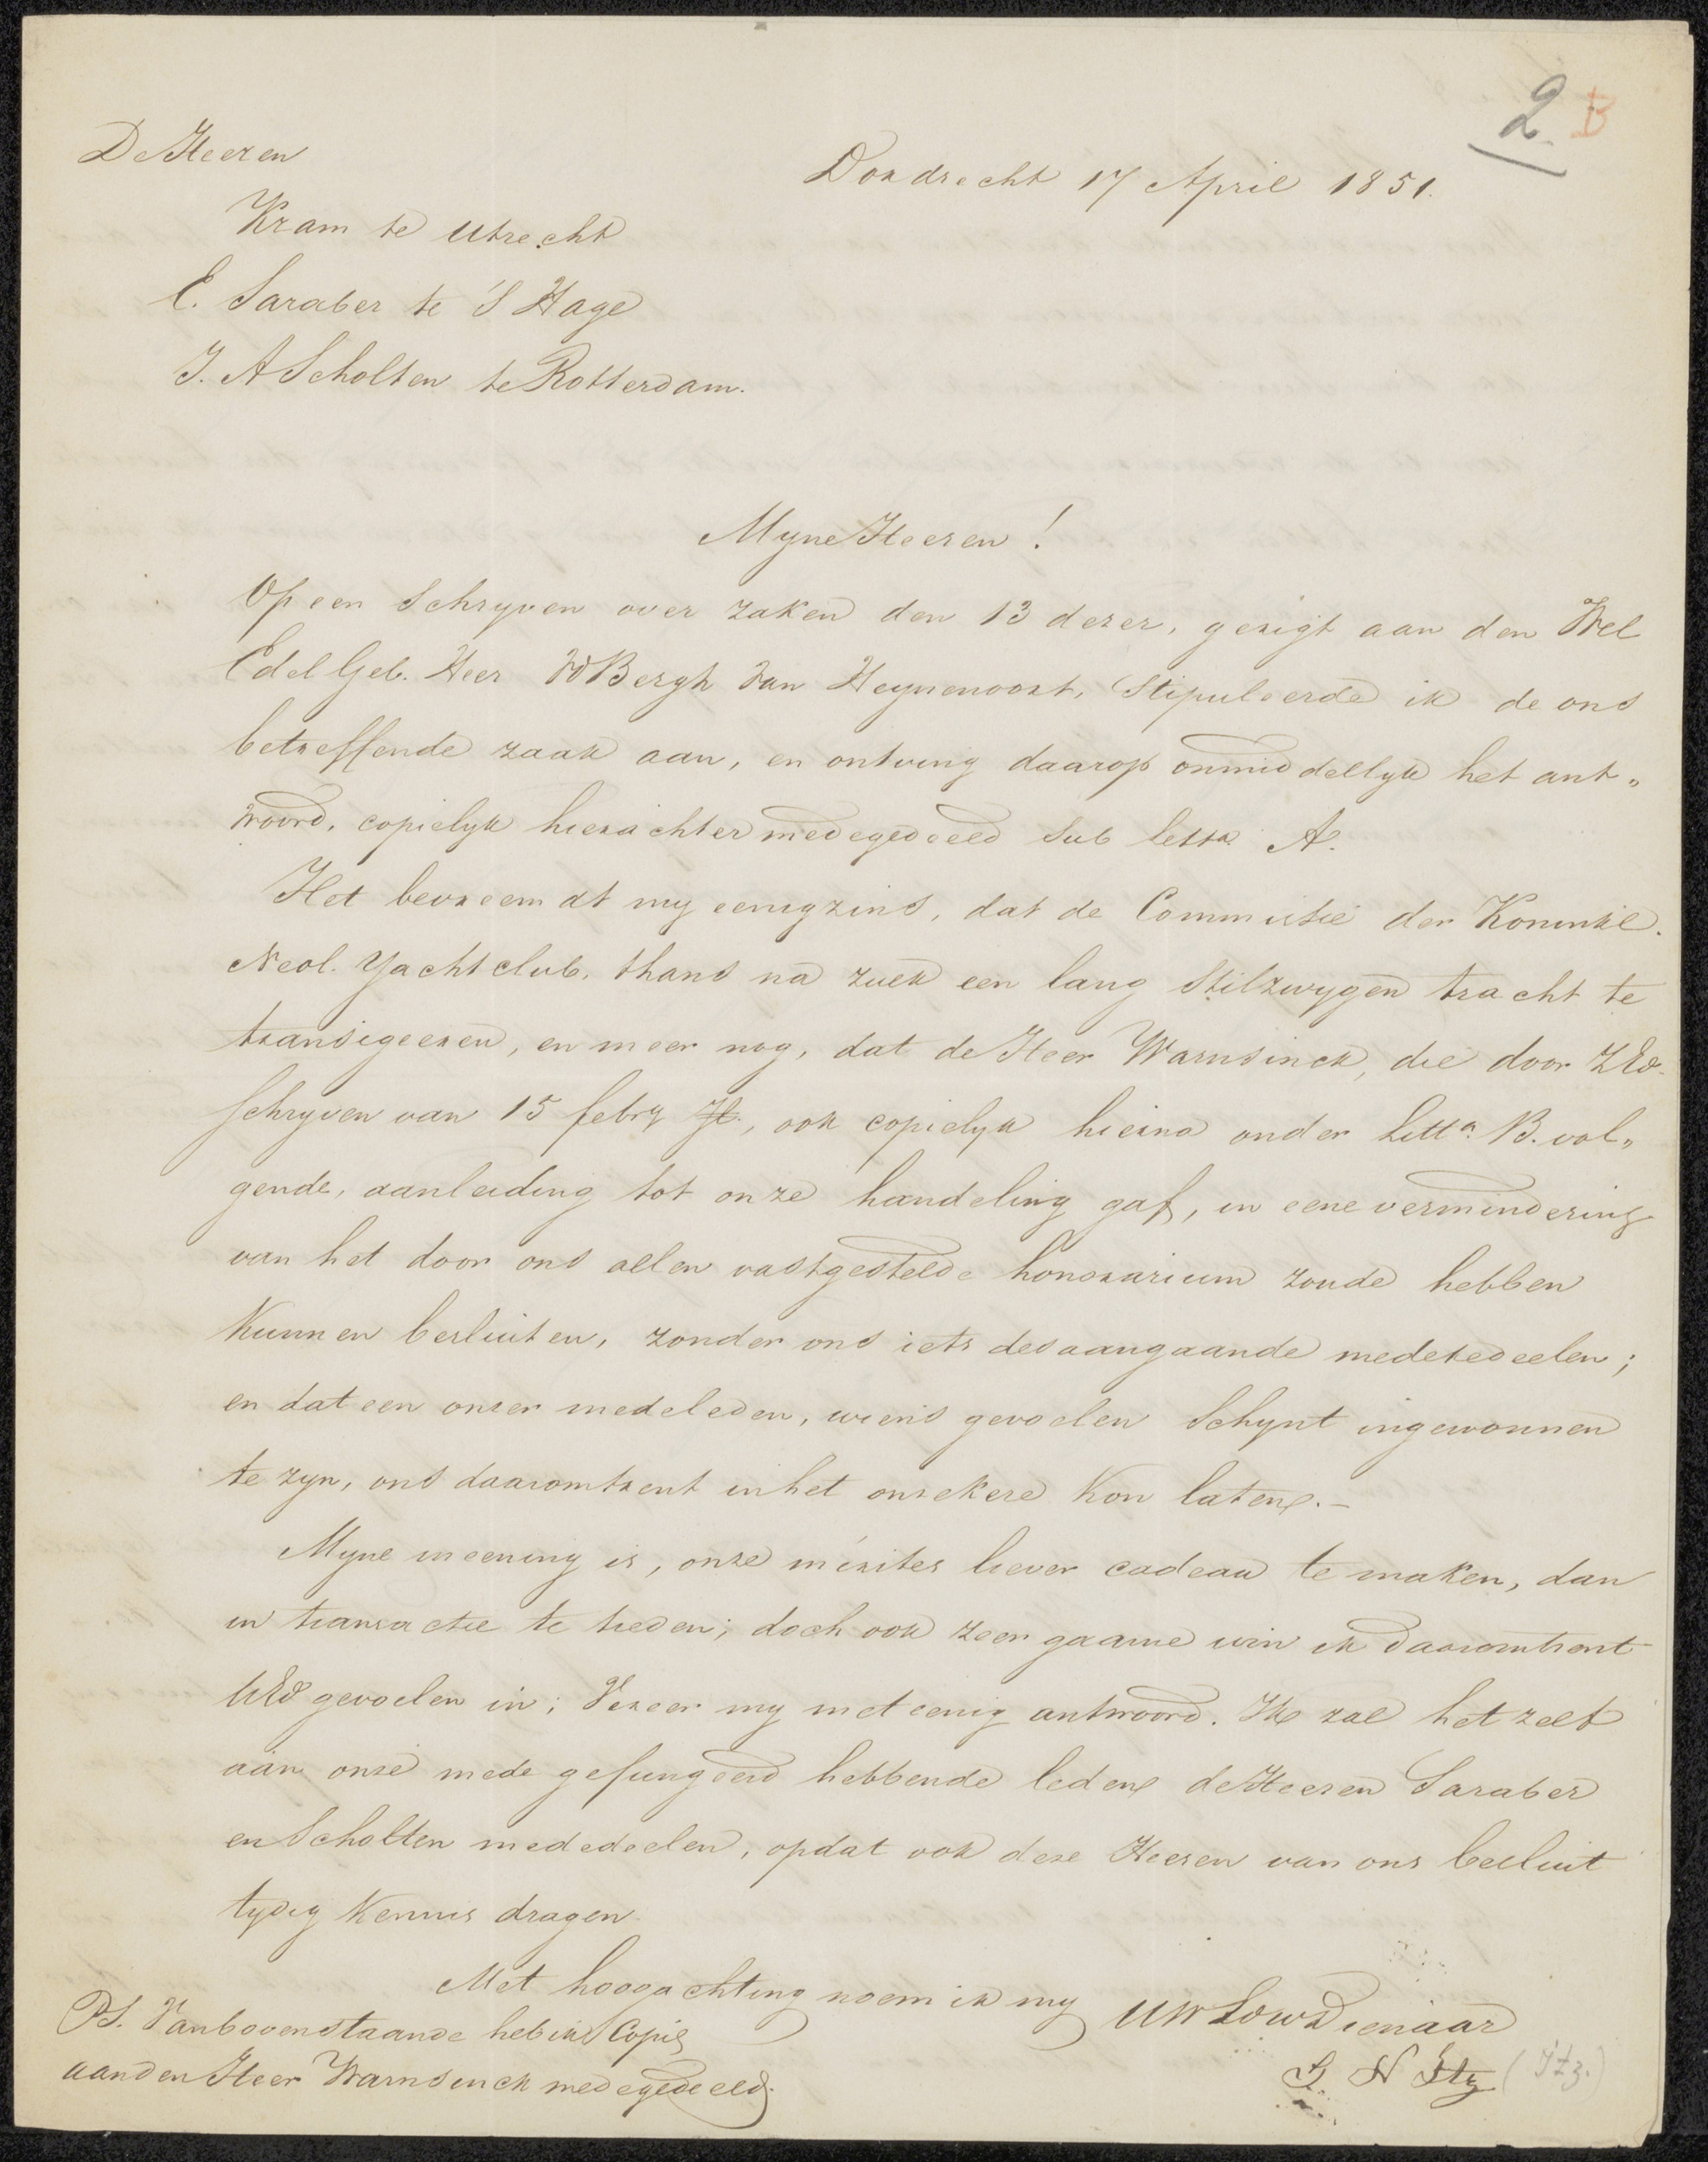 2 B
De Heeren
Dordrecht 17 April 1851.
Kram te Utrecht
C. Saraber te 'S Hage
J. A Scholten te Rotterdam.
Myne Heeren!
Op een Schryven over zaken den 13 dezer, gerigt aan den Wel
Edel Geb. Heer VdBergh van Heynenoort, Stipuleerde ik de ons
betreffende zaak aan, en ontving daarop onmiddellyk het ant„
woord, copielyk hierachter medegedeeld Sub letta A.
Het bevreemdt my eenigzins, dat de Commissie der Koninkl.
Nedl. Yachtclub, thans na zulk een lang Stilzwygen tracht te
transigeeren, en meer nog, dat de Heer Warnsinck, die door ZEd
Schryven van 15 febry jl., ook copielyk hierna onder Litta B. vol„
gende, aanleiding tot onze handeling gaf, in eene vermindering
van het door ons allen vastgestelde honorarium zoude hebben
Kunnen besluiten, zonder ons iets desaangaande medetedeelen;
en dat een onzer medeleden, wiens gevoelen Schynt ingewonnen
te zyn, ons daaromtrent in het onzekere Kon laten.-
Myne meening is, onze mérites liever cadeau te maken, dan
in transactie te treden; doch ook zeer gaarne win ik daaromtrent
UEd gevoelen in; Vereer my met eenig antwoord. Ik zal het zelf
aan onze mede gefungeerd hebbende leden de Heeren Saraber
en Scholten mededeelen, opdat ook deze Heeren van ons besluit
tydig Kennis dragen.
Met hoogachting noem ik my
UW Dienaar
PS. Van bovenstaande heb ik Copie
aan den Heer Warnsinck medegedeeld.
G. N Itz (Itz.)